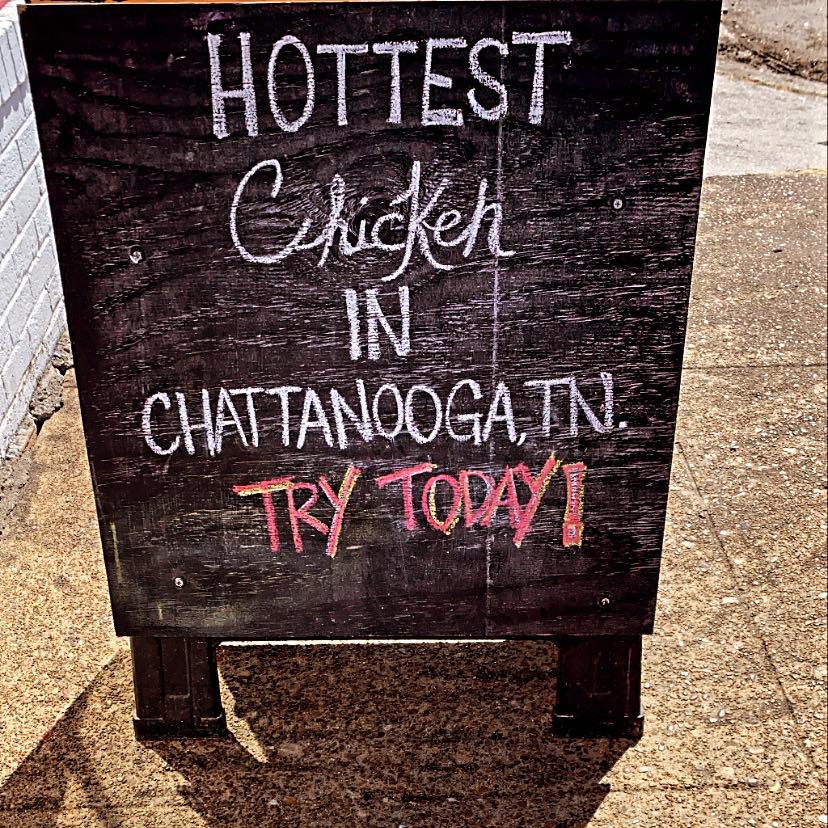 HOTTEST
Chicken
IN
CHATTANOOGA, TN.
TRY TODAY!